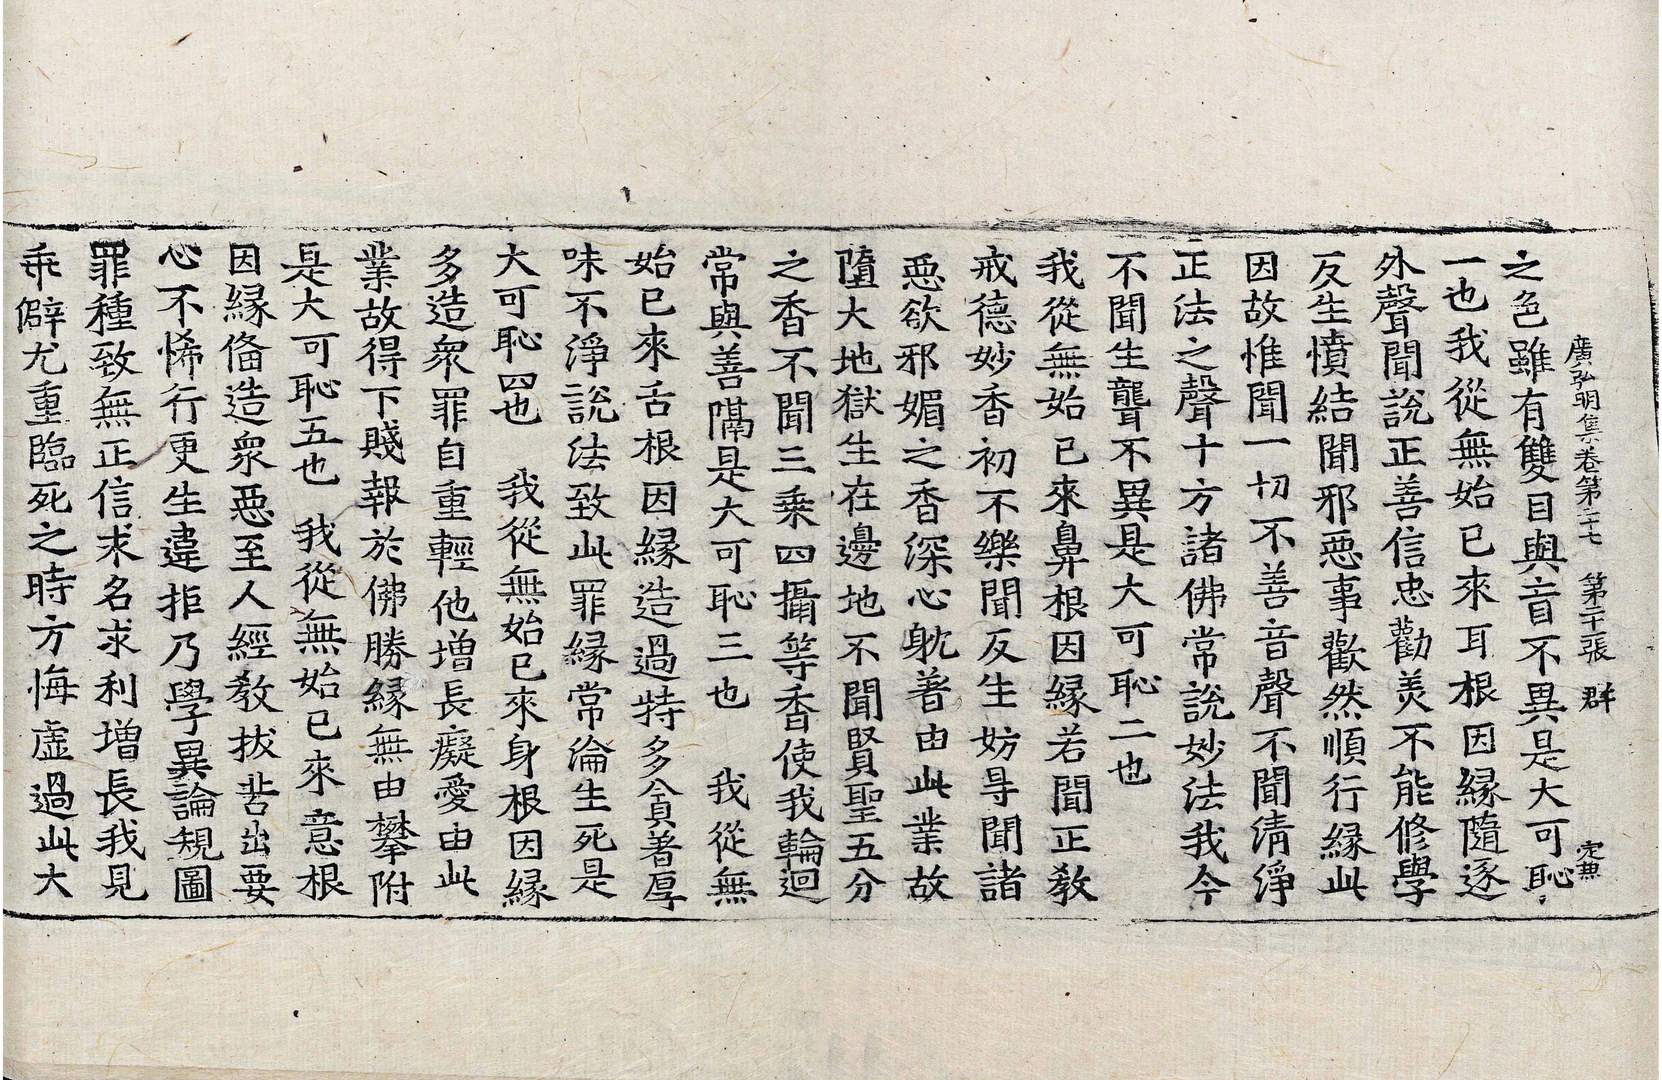 廣弘明集卷第二十七 第二十張 群 定兼
之色雖有雙目與盲不異是大可恥
一也我從無始已來耳根因緣隨逐
外聲聞說正善信忠勸美不能修學
反生憤結聞邪惡事歡然順行緣此
因故惟聞一切不善音聲不聞清淨
正法之聲十方諸佛常說妙法我今
不聞生聾不異是大可恥二也
我從無始已來鼻根因緣若聞正教
戒德妙香初不樂聞反生妨㝵聞諸
惡欲邪媚之香深心躭著由此業故
墮大地獄生在邊地不聞賢聖五分
之香不聞三乘四攝等香使我輪迴
常與善隔是大可恥三也 我從無
始已來舌根因緣造過特多貪著厚
味不淨說法致此罪緣常淪生死是
大可恥四也 我從無始已來身根因緣
多造眾罪自重輕他增長癡愛由此
業故得下賤報於佛勝緣無由攀附
是大可恥五也 我從無始已來意根
因緣俻造眾惡至人經教拔苦出要
心不悕行更生違拒乃學異論規圖
罪種致無正信求名求利增長我見
乖僻尤重臨死之時方悔虛過此大